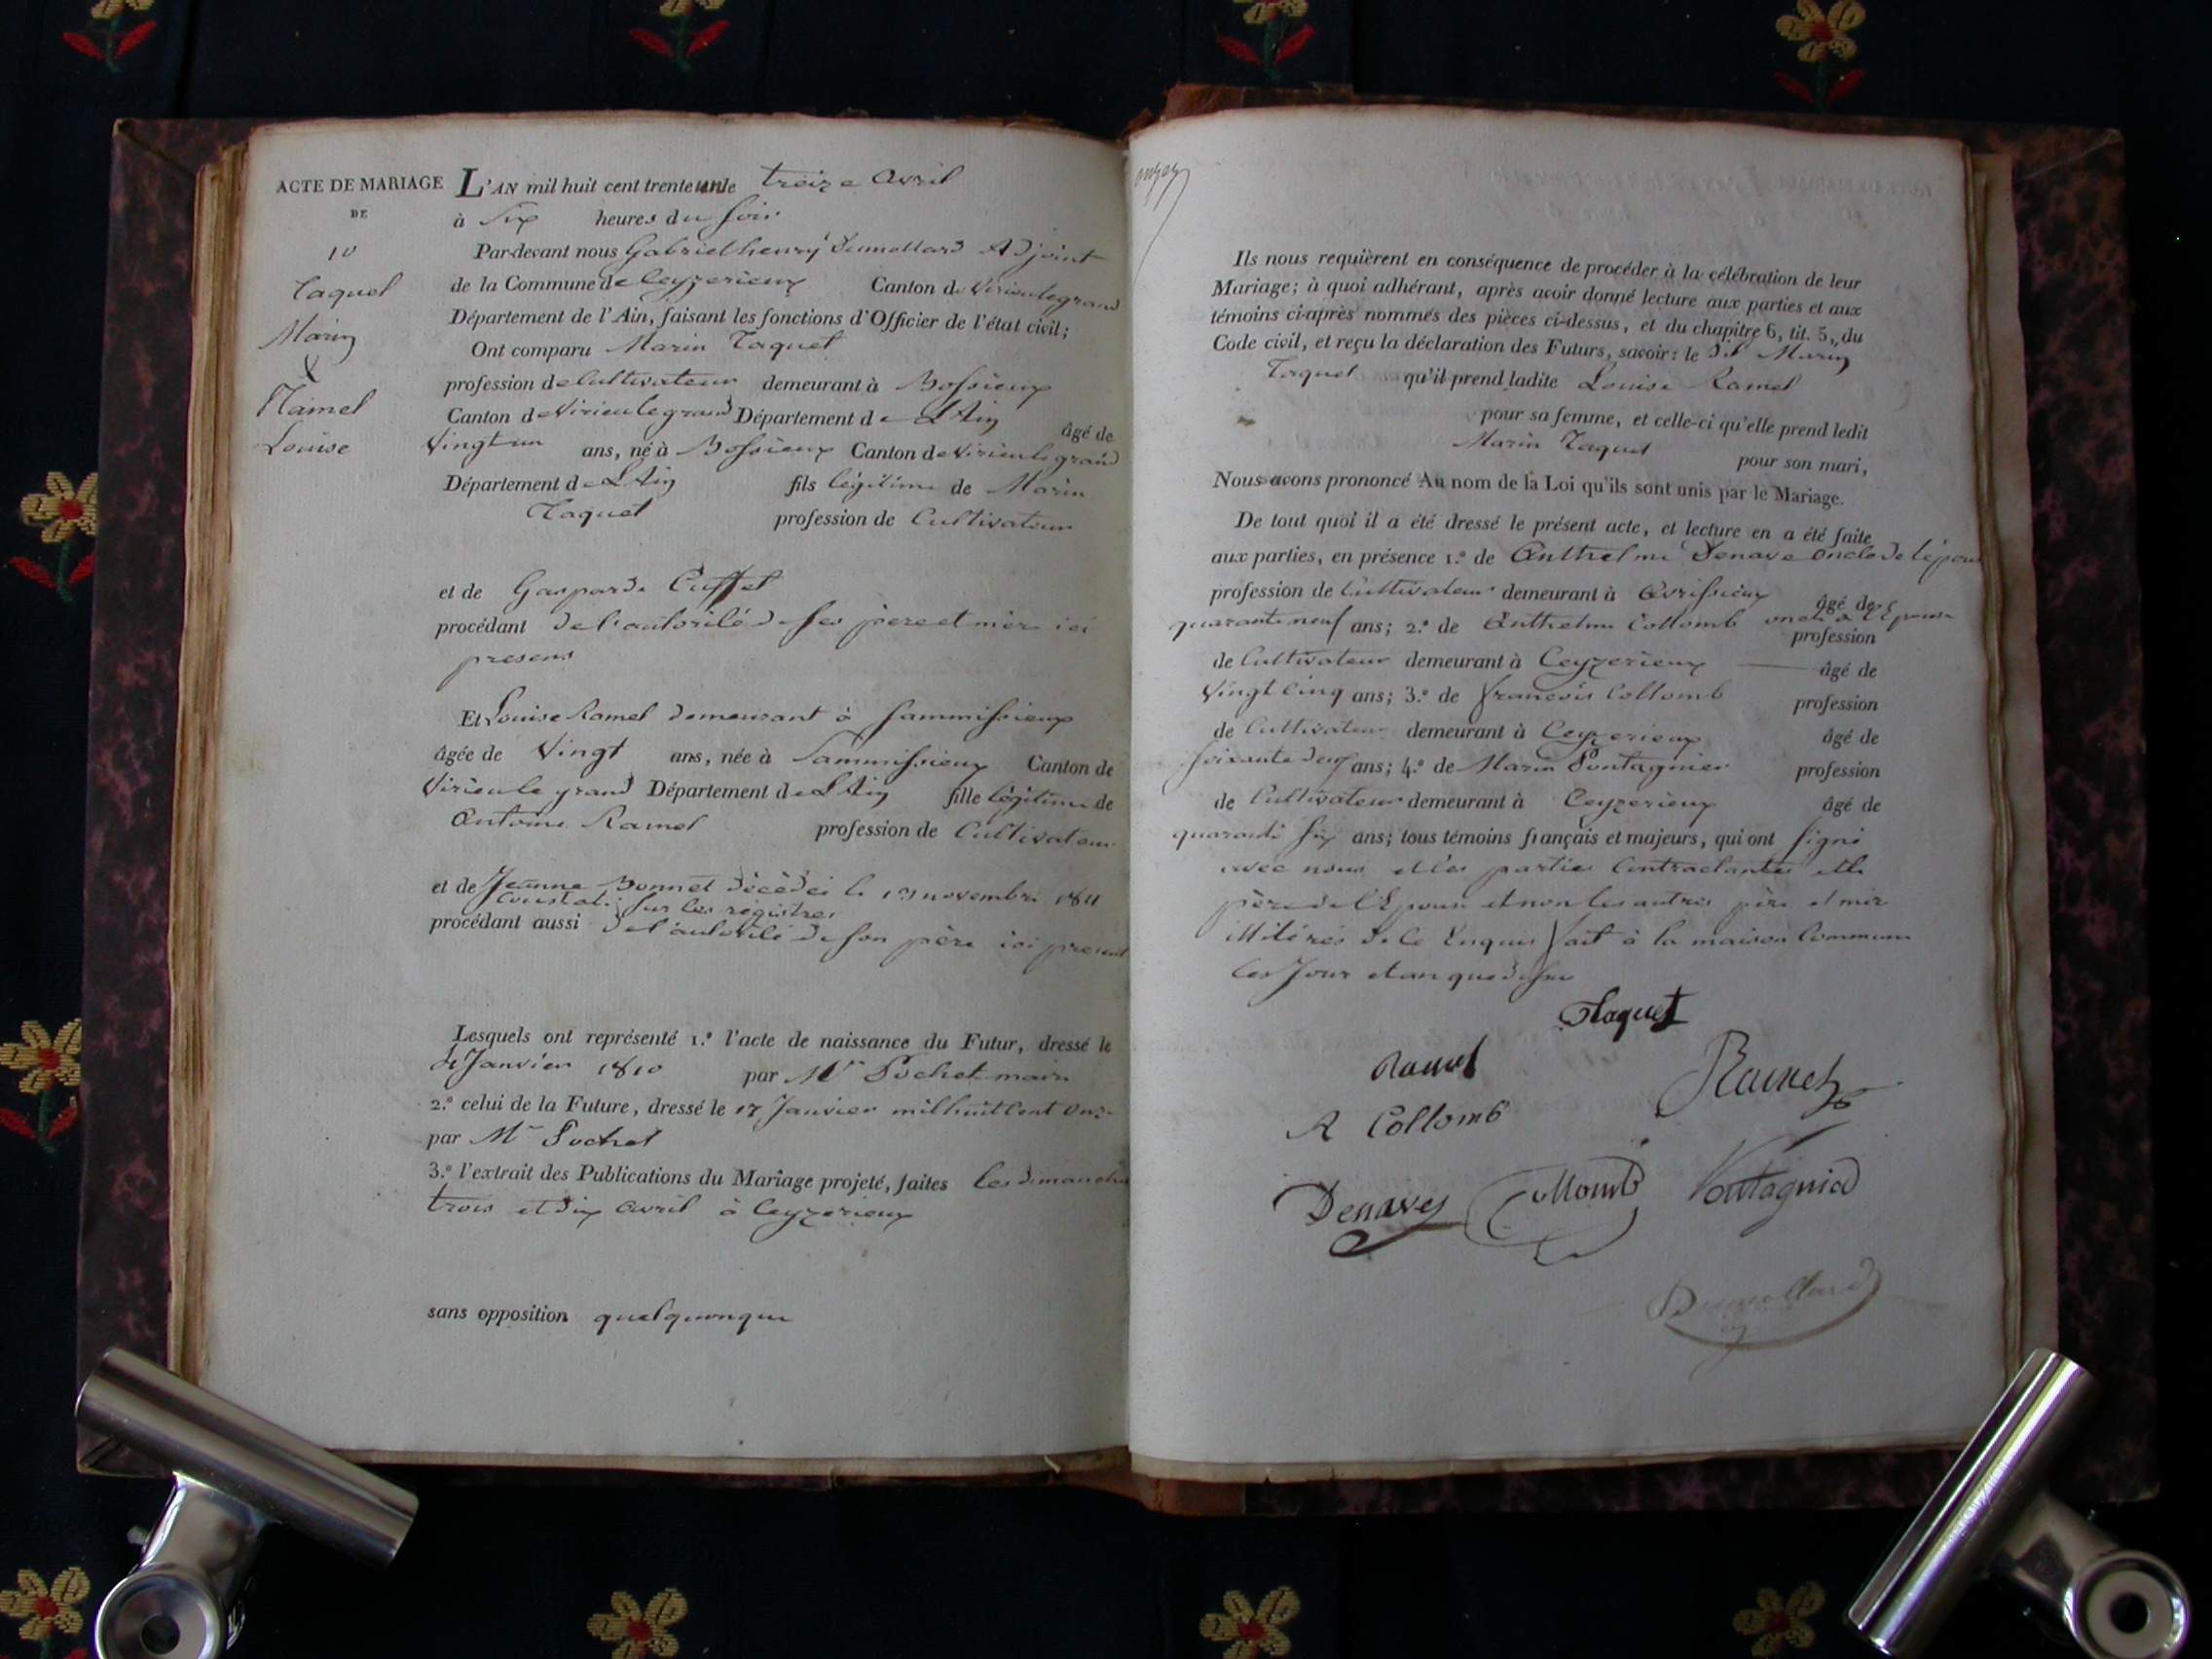 ACTE DE MARIAGE
DE
10
Taquet
Marin
&
Ramel
Louise
L'AN mil huit cent trente unle treize Avril
à Six heures du soir
Par-devant nous Gabriel henry Dumollard Adjoint
de la Commune de Ceyzerieux Canton de Virieu le grand
Département de l'Ain, faisant les fonctions d'Officier de l'état civil;
Ont comparu Marin Taquet
profession de Cultivateur demeurant à Bossieux
Canton de Virieu le grand Département de L'Ain âgé de
Vingt un ans, né à Bossieux Canton de Virieu le grand
Département de L'Ain fils légitime de Marin
Taquet profession de Cultivateur
et de Gasparde Cuffet
procédant de l'autorité de ses père et mère ici
presens
Et Louise Ramel demeurant à Sammissieux
âgée de Vingt ans, née à Sammissieux Canton de
Virieu le grand Département de L'Ain fille légitime de
Antoine Ramel profession de Cultivateur
et de Jeanne Bonnet décédée le 13 novembre 1811
Constaté sur les régistres
procédant aussi de l'autorité de son père ici present
Lesquels ont représenté 1.º l'acte de naissance du Futur, dressé le
4 Janvier 1810 par Mr Pochet maire
2.º celui de la Future, dressé le 17 Janvier mil huit Cent Onze
par Mr Pochet
3.º l'extrait des Publications du Mariage projeté, faites les dimanches
trois et dix avril à Ceyzerieux
sans opposition quelquonque
onze
Ils nous requièrent en conséquence de procéder à la célébration de leur
Mariage; à quoi adhérant, après avoir donné lecture aux parties et aux
témoins ci-après nommés des pièces ci-dessus, et du chapitre 6, tit. 5, du
Code civil, et reçu la déclaration des Futurs, savoir: le dit Marin
Taquet qu'il prend ladite Louise Ramel
pour sa femme, et celle-ci qu'elle prend ledit
Marin Taquet pour son mari,
Nous avons prononcé Au nom de la Loi qu'ils sont unis par le Mariage.
De tout quoi il a été dressé le présent acte, et lecture en a été faite
aux parties, en présence 1.º de Anthelme Denave oncle de l'épou
profession de Cultivateur demeurant à Avrissieux âgé de
quarante neuf ans; 2.º de Anthelme Collomb oncle à l'épouse profession
de Cultivateur demeurant à Ceyzerieux âgé de
Vingt Cinq ans; 3.º de François Collomb profession
de Cultivateur demeurant à Ceyzerieux âgé de
soixante deux ans; 4.º de Marin Pontagnier profession
de Cultivateur demeurant à Ceyzerieux âgé de
quarante six ans; tous témoins français et majeurs, qui ont signé
avec nous et les parties Contractantes et le
père de l'Epouse et non les autres père et mère
illitérés de ce Enquis fait à la maison Commune
les Jour et an que dessus
Taquet
Ramel
Ramel
A Collomb
Denaves
Collomb
Pontagnier
Dumollard